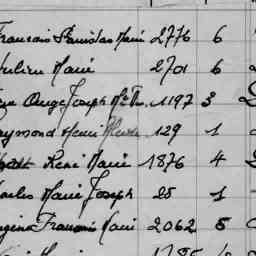 Francois Stanislas Marie 2776 6
Julien Marie 2701 6
Ange Joseph M. Th. 1197 3
Raymond Henri 129 1
René Marie 1876 4
Charles Marie Joseph 25 1
Eugène Francois Marie 2062 5
Marie